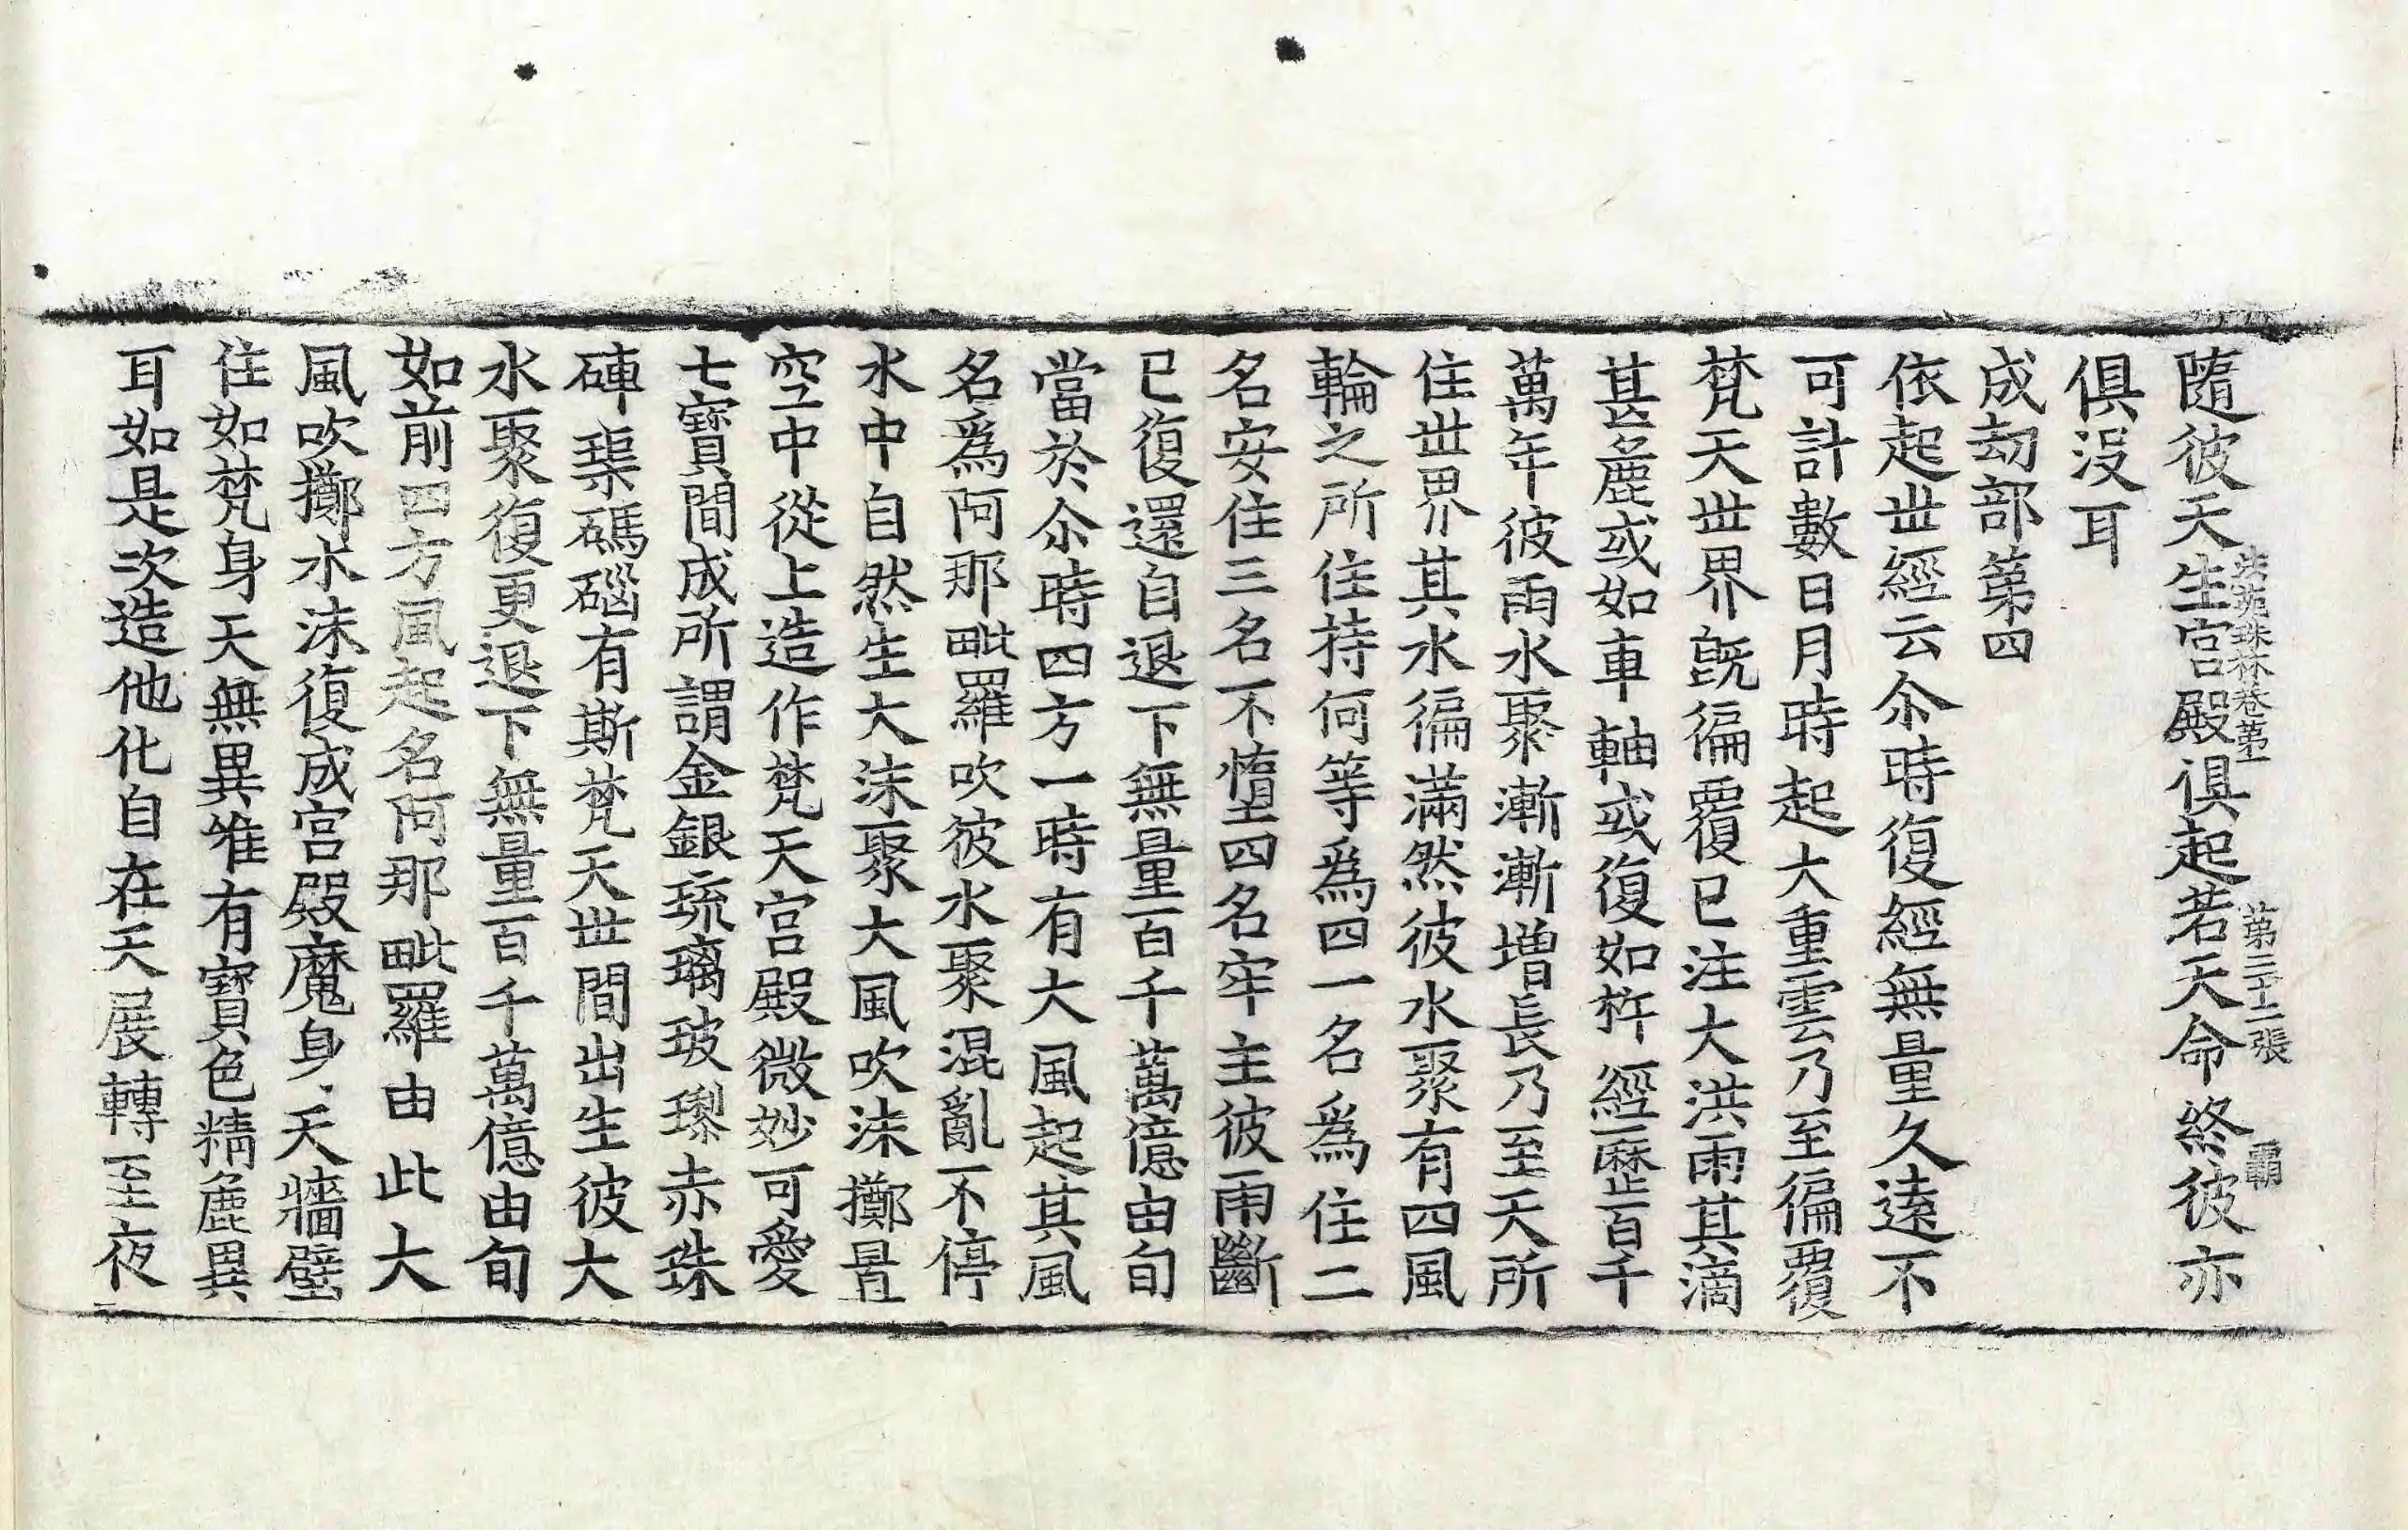 隨彼天生宮殿俱起若天命終彼亦
法苑珠林卷第一 第二十二張 覇
俱沒耳
成劫部第四
依起世經云尒時復經無量久遠不
可計數日月時起大重雲乃至徧覆
梵天世界旣徧覆已注大洪雨其滴
甚麁或如車軸或復如杵經歷百千
萬年彼雨水聚漸漸增長乃至天所
住世界其水徧滿然彼水聚有四風
輪之所住持何等爲四一名爲住二
名安住三名不墮四名牢主彼雨斷
已復還自退下無量百千萬億由旬
當於尒時四方一時有大風起其風
名爲阿那毗羅吹彼水聚混亂不停
水中自然生大沫聚大風吹沫擲置
空中從上造作梵天宮殿微妙可愛
七寶間成所謂金銀琉璃玻瓈赤珠
硨磲碼碯有斯梵天世間出生彼大
水聚復更退下無量百千萬億由旬
如前四方風起名阿那毗羅由此大
風吹擲水沫復成宮殿魔身天牆壁
住如梵身天無異唯有寶色精麁異
耳如是次造他化自在天展轉至夜